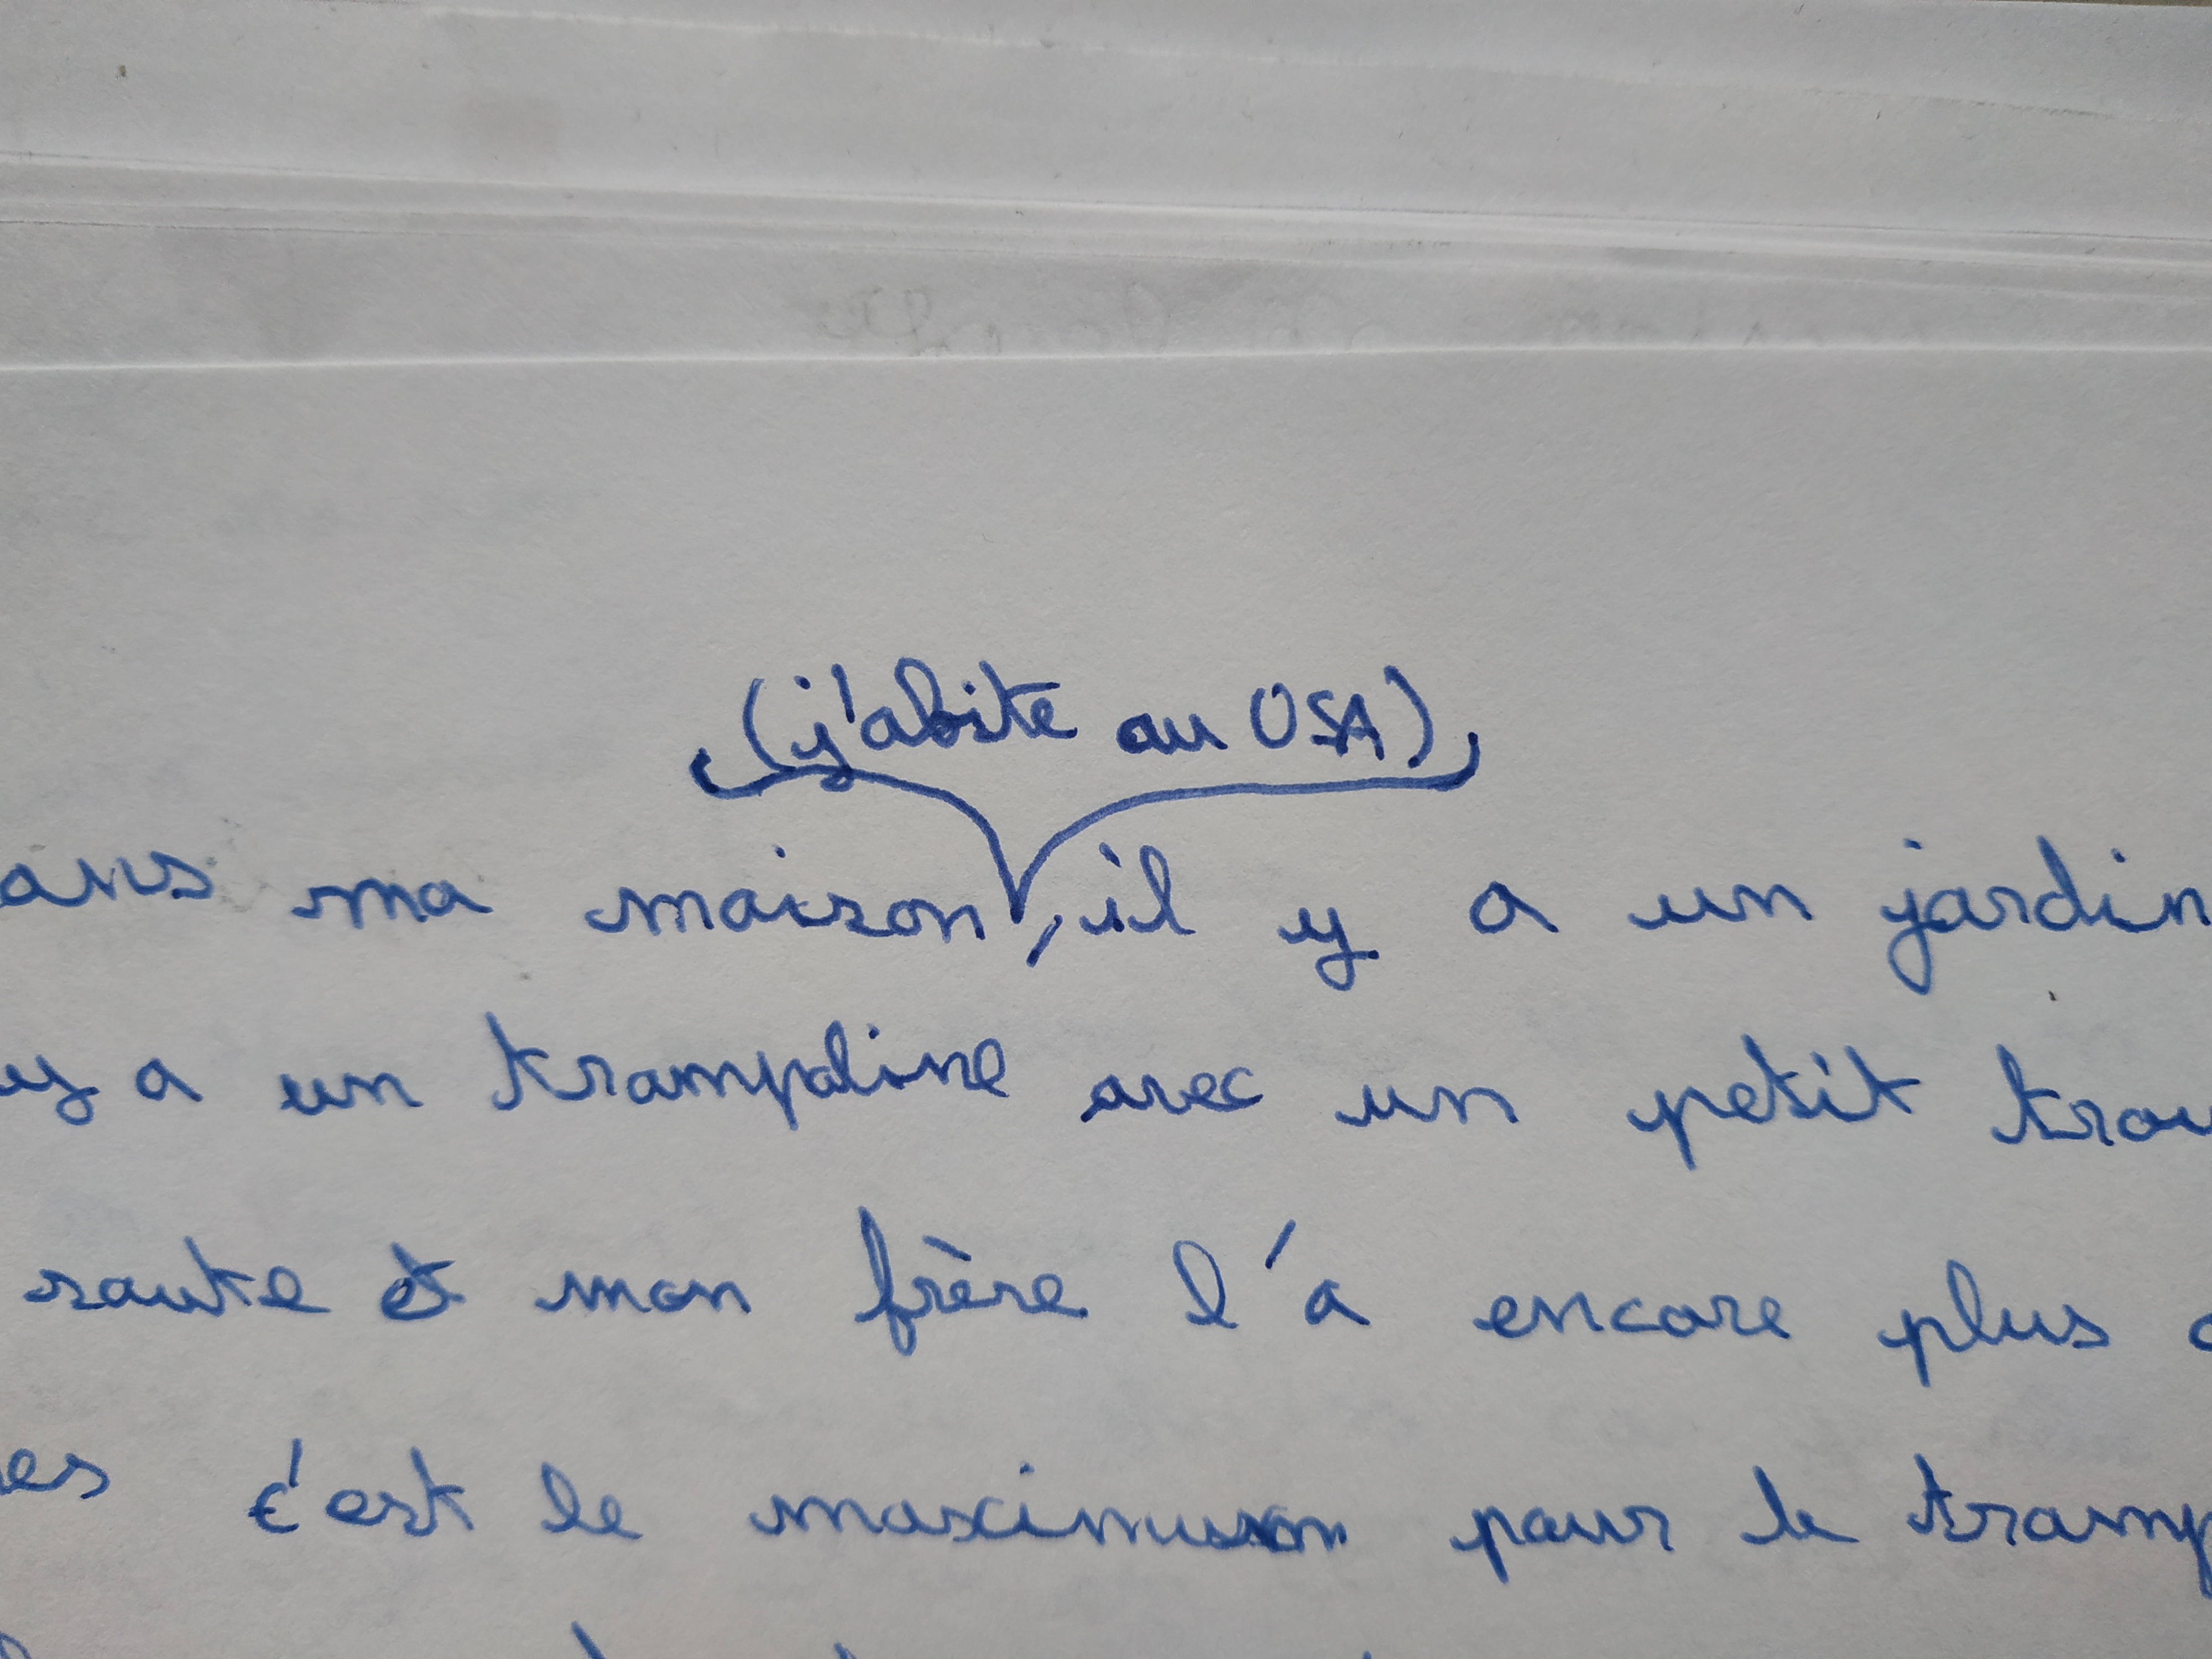 (j'abite au USA)
ans ma maison, il y a un jardin
y a un trampoline avec un petit trou
saute et mon frère l'a encore plus
es c'est le maximum pour le tramp